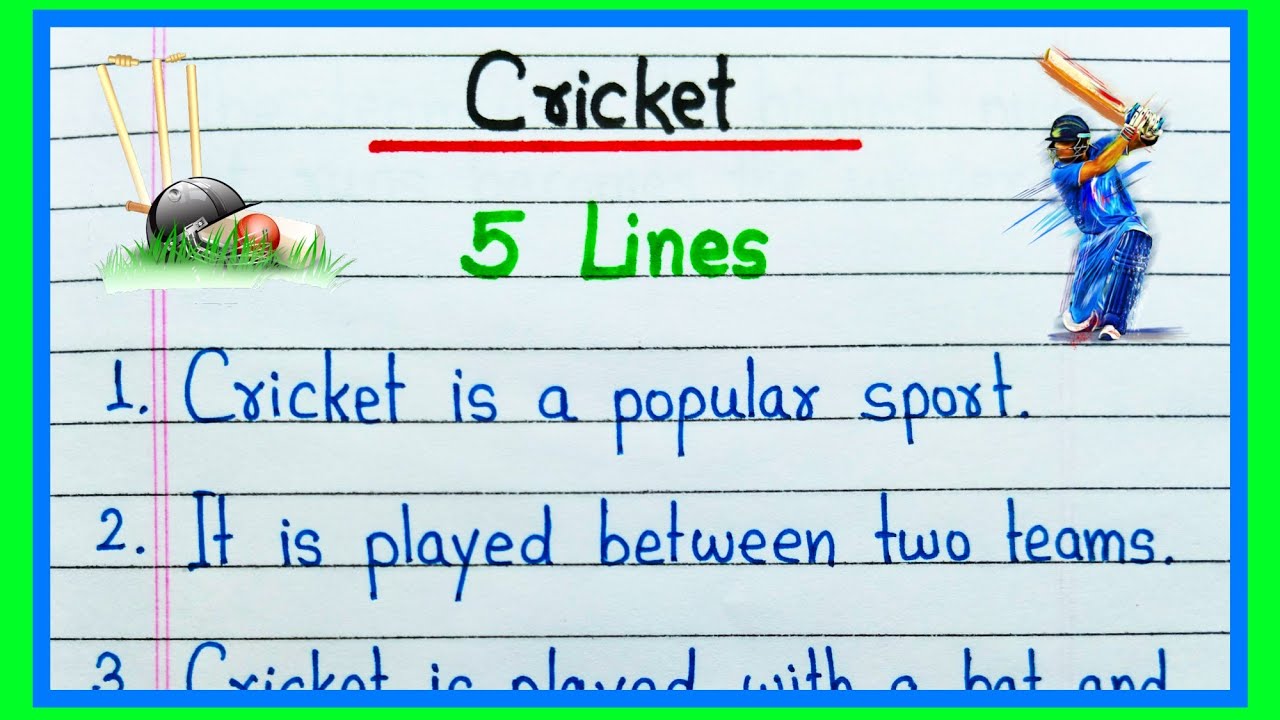 Cricket
5 Lines
1. Cricket is a popular sport.
2. It is played between two teams.
3. Cricket is played with a bat and